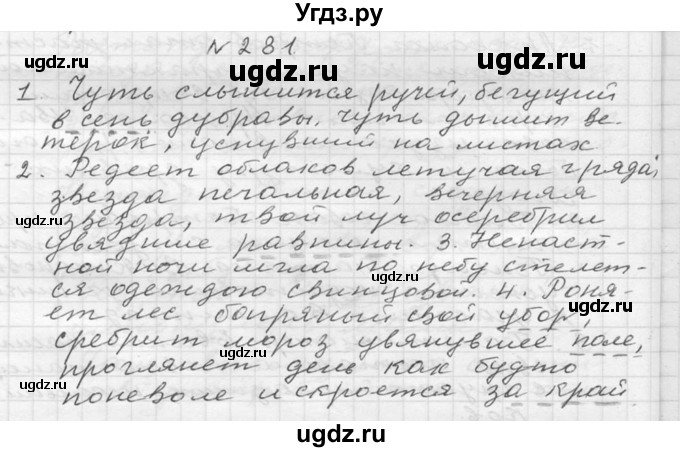 Угдз.ру
№ 281
ugdz.ru
ugdz.ru
1 Чуть слышится ручей, бегущий
в сень дубравы. Чуть дымит ве-
терок, уснувший на листах
ugdz.ru
ugdz.ru
2. Редеет облаков летучая гряда;
звезда печальная, вечерняя
ugdz.ru
звезда, твой луч осеребрил
увядшие равнины. 3. Ненаст-
ugdz.ru
ной ночи мгла по небу стелет-
ugdz.ru
ся одеждою свинцовой. 4. Роня-
ет лес багряный свой убор,
ugdz.ru
сребрит мороз увянувшее поле,
проглянет день как будто
ugdz.ru
поневоле и скроется за край
ugdz.ru
ugdz.ru